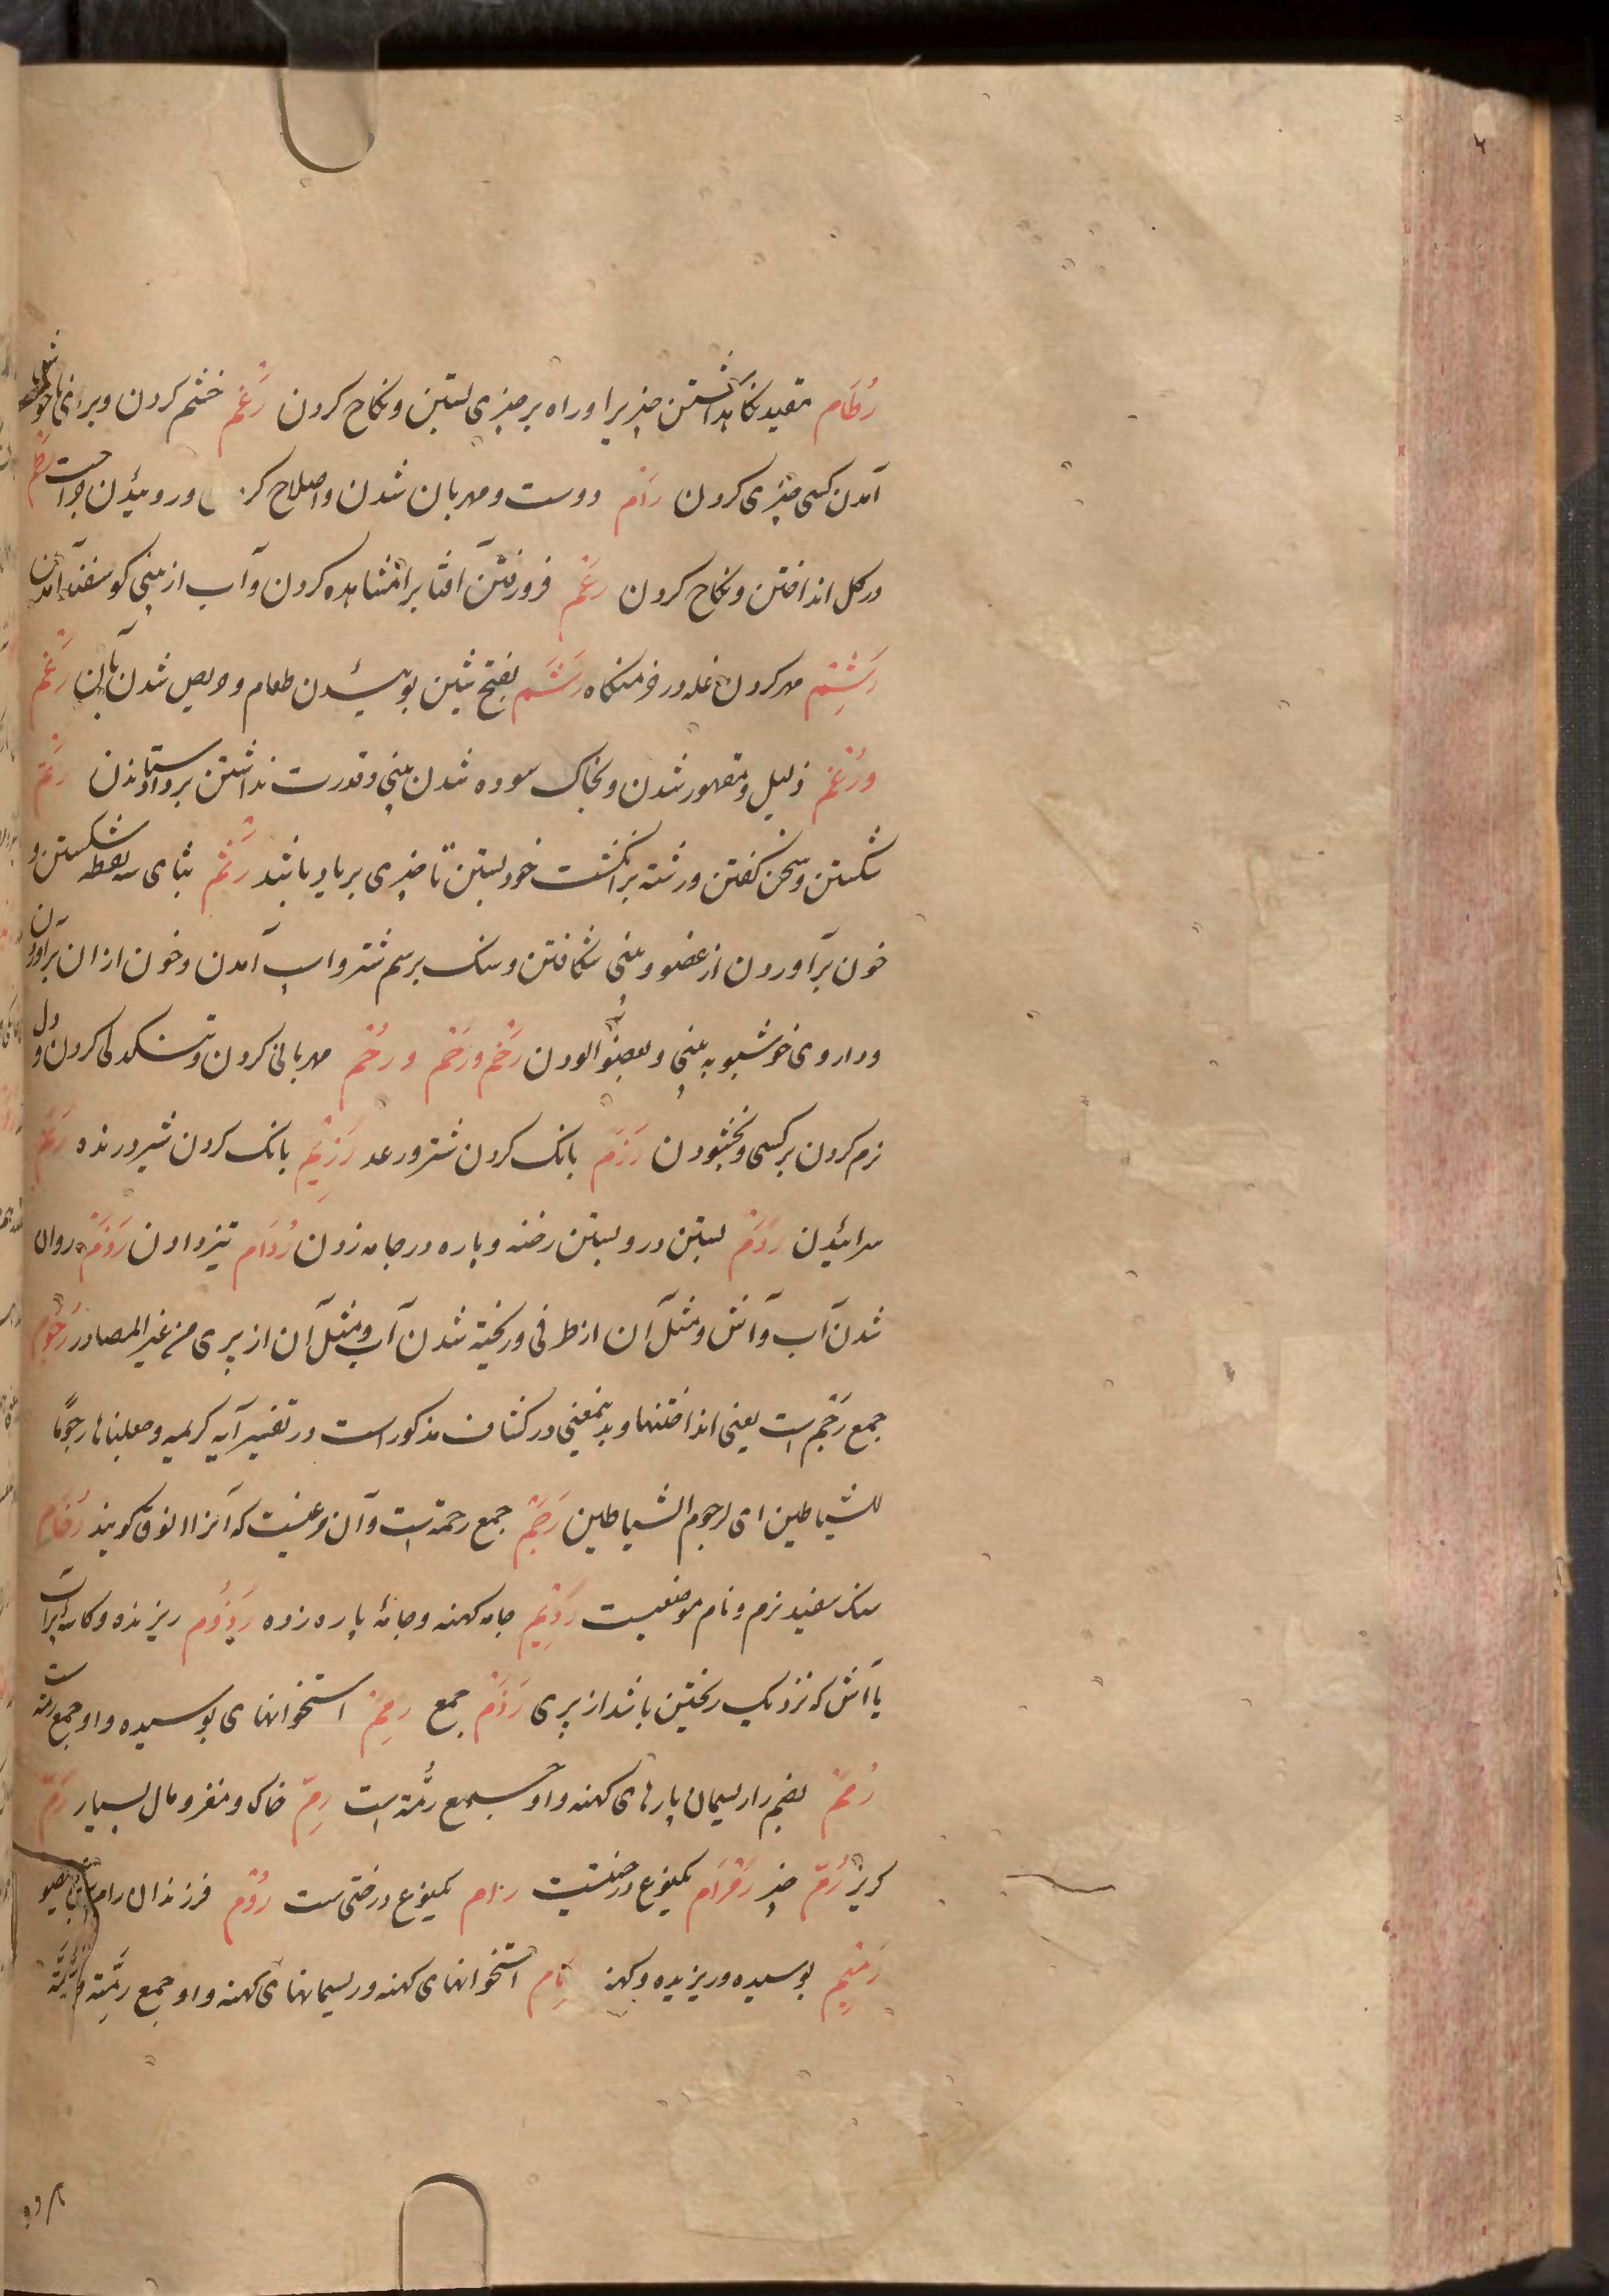 رُطَام مقید نکاهداشتن چیزیرا و راه بر چیزی بستن و نکاح کردن رَغْم خشم کردن و برای ناخوشی
آمدن کسی چیزی کردن رَام دوست و مهربان شدن و اصلاح کر ن و روییدن جراحت رَطْم
در کل انداختن و نکاح کردن رَغْم فرو رفتن آفتابرا مشاهده کردن و آب از بینی کوسفند آمدن
رَشْم مهر کردن غله در خرمنکاه رَشَم بفتح شین بوییدن طعام و حریص شدن بان رَغْم
و رُغْم ذلیل و مقهور شدن و بخاک سوده شدن بینی و قدرت نداشتن بر داد ستاندن رَتْم
شکستن و سخن کفتن و رشته بر انکشت خود بستن تا چیزی بر یاد باشد رَثْم بثای سه نقطه شکستن و
خون برآوردن از عضو و بینی شکافتن و سنک بر سم شتر و اسپ آمدن و خون از ان برآوردن
و داروی خوشبو به بینی و بعضو آلودن رَخْم و رَخَم و رُخْم مهربانی کردن و تنکدلی کردن و دل
نرم کردن بر کسی و بخشودن رَزَم بانک کردن شتر و رعد رَزِیْم بانک کردن شیر درنده رَنَم
سراییدن رَدْم بستن در و بستن رخنه و پاره در جامه زدن رُدَام تیز دادن رَذَم روان
شدن آب و آتش و مثل آن از ظرفی و ریخته شدن آب و مثل آن از پری من غیر المصادر رُجُوْم
جمع رَجْم است یعنی انداختنها و بدینمعنی در کشاف مذکور است در تفسیر آیه کریمه وجعلناها رجومًا
للشیاطین ای لرجوم الشیاطین رَخَم جمع رخمة است و آن مرغیست که آنرا انوق کویند رُخَام
سنک سفید نرم و نام موضعیست رَدِیْم جامه کهنه و جامهٔ پاره زده رَذُوْم ریزنده و کاسه پر آب
یا آتش که نزدیک ریختن باشد از پری رَذَم جمع رِمَم استخوانهای بوسیده و او جمع رمه است
رُمَم بضم را ریسمان پارهای کهنه و او جمع رُمّه است رِمّ خاک و مغز و مال بسیار رَمّ
کریز رُمّ چیز رَمْرَام یکنوع درختیست رنام یکنوع درختی ست رُوْم فرزندان رام
رَمِیْم بوسیده و ریزیده و کهنه رِمَام استخوانهای کهنه و ریسمانهای کهنه و او جمع رِمّة و رُمّة